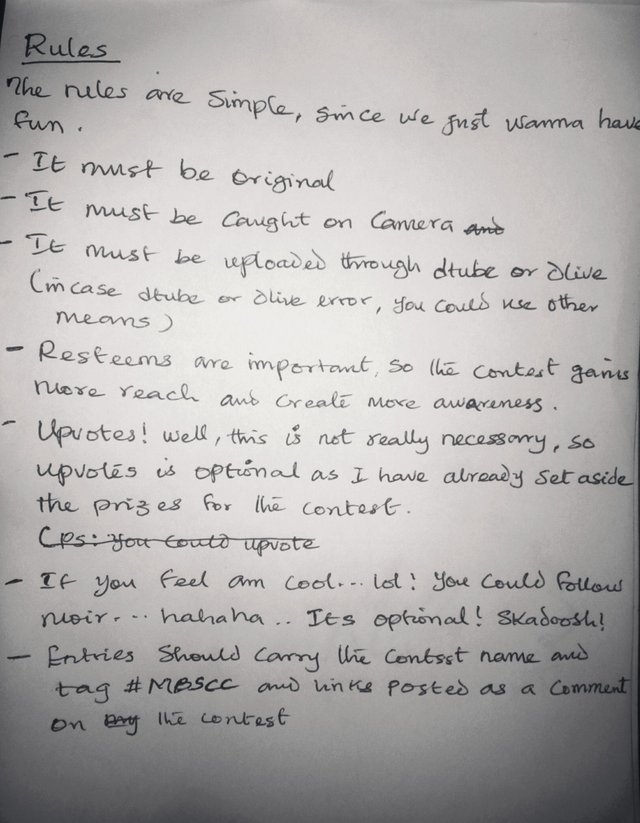 Rules
The rules are Simple, since we just wanna have
fun.
- It must be original
- It must be Caught on Camera and
- It must be uploaded through dtube or dlive
(incase dtube or dlive error, you could use other
means)
- Resteems are important, so the contest gains
more reach and create more awareness.
- Upvotes! well, this is not really necessary, so
upvotes is optional as I have already set aside
the prizes for the contest.
(ps: you could upvote
- If you feel am cool... lol! you could follow
moir.... hahaha.. Its optional! Skadoosh!
- Entries Should carry the contsst name and
tag #MBSCC and links posted as a comment
on the contest